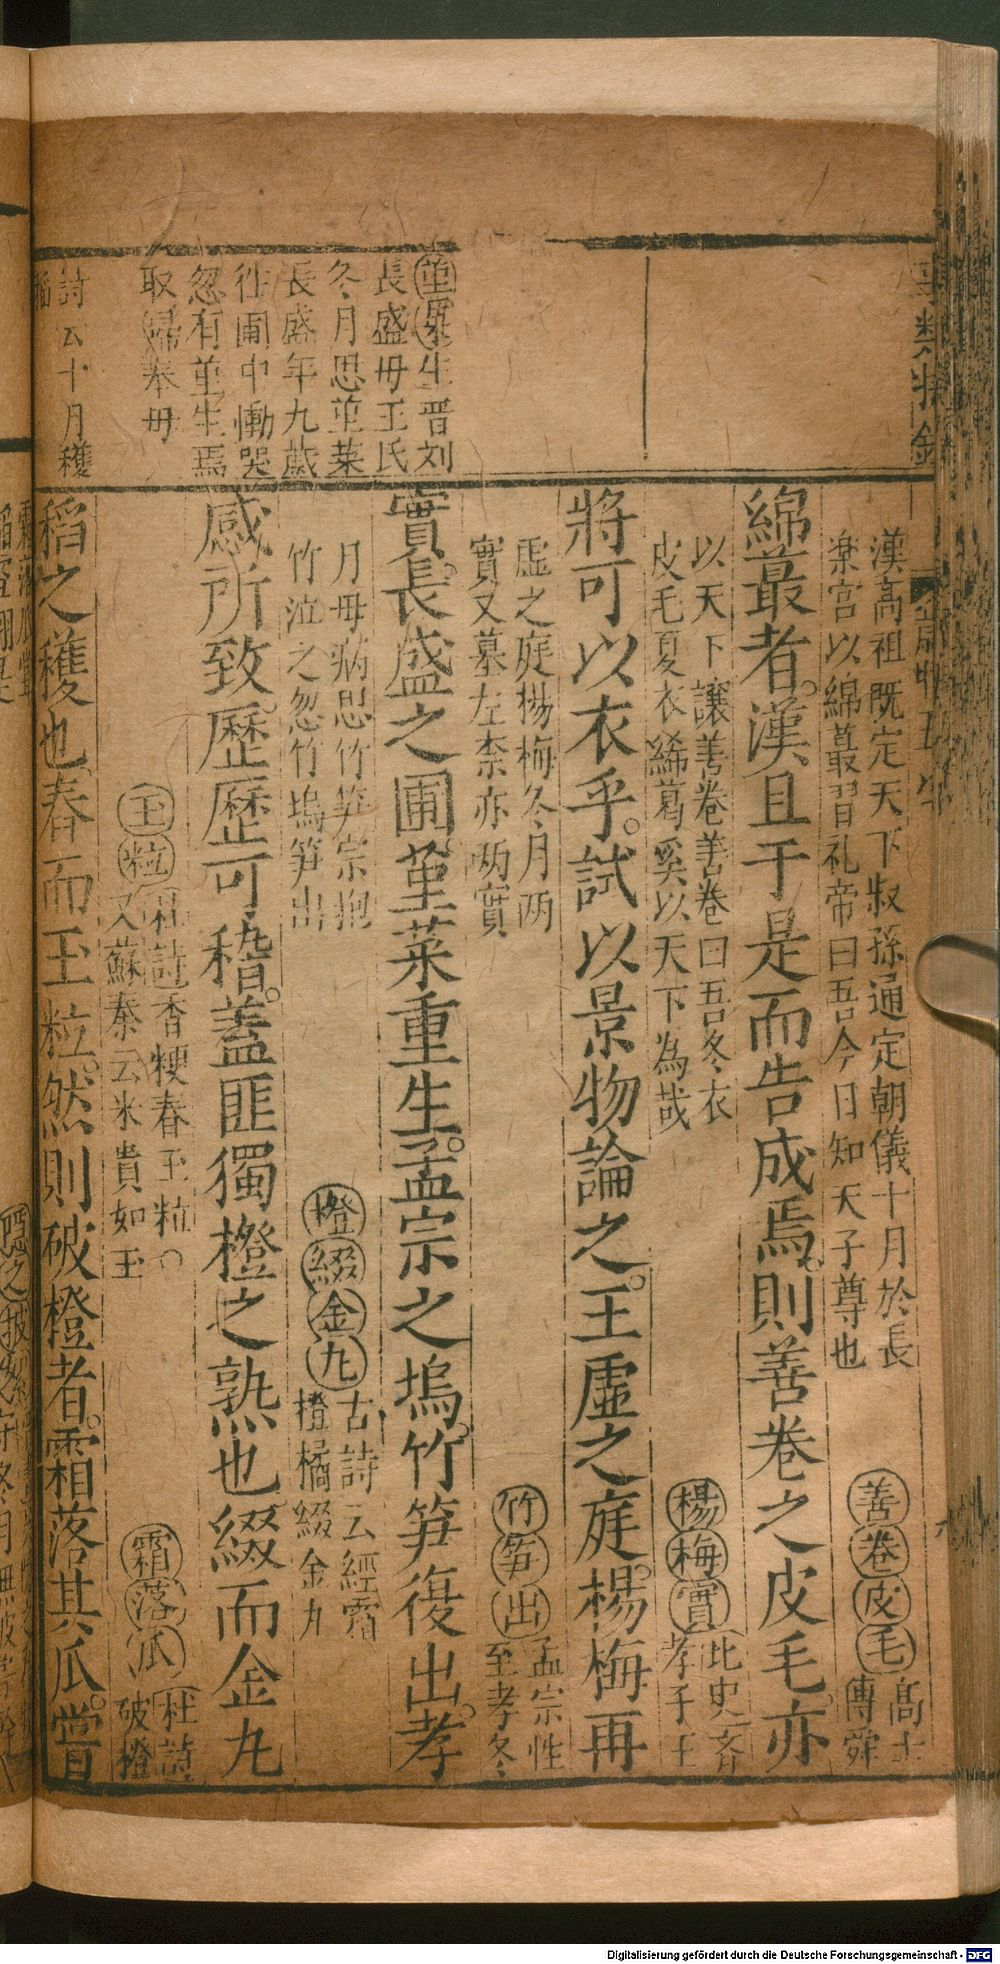 漢高祖既定天下叔孫通定朝儀十月於長
楽宮以綿蕞習礼帝曰吾今日知天子尊也
善卷皮毛
高士
傳舜
綿蕞者漢且于是而告成焉則善卷之皮毛亦
以天下讓善卷善卷曰吾冬衣
皮毛夏衣絺葛奚以天下為哉
楊梅實
北史
孝子王
將可以衣乎試以景物論之王虛之庭楊梅再
虛之庭楊梅冬月两
實又墓左柰亦两實
竹笋出
孟宗性
至孝冬
實長盛之圃堇菜重生孟宗之塢竹笋復出孝
月母病思竹笋宗抱
竹泣之忽竹塢笋出
橙綴金丸
古詩云經霜
橙橘綴金丸
感所致歷歷可稽蓋匪獨橙之熟也綴而金丸
玉粒
杜詩香粳舂玉粒
又蘇秦云米貴如玉
霜落瓜
杜詩
破橙
稻之穫也舂而玉粒然則破橙者霜落其瓜嘗
生晋刘
長盛母王氏
冬月思堇菜
長盛年九歲
往圃中慟哭
忽有堇生焉
取歸奉母
詩云十月穫
稻
Digitalisierung gefördert durch die Deutsche Forschungsgemeinschaft - DFG